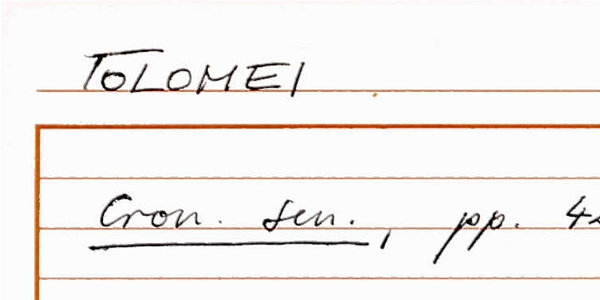 TOLOMEI
Cron. sen., pp.